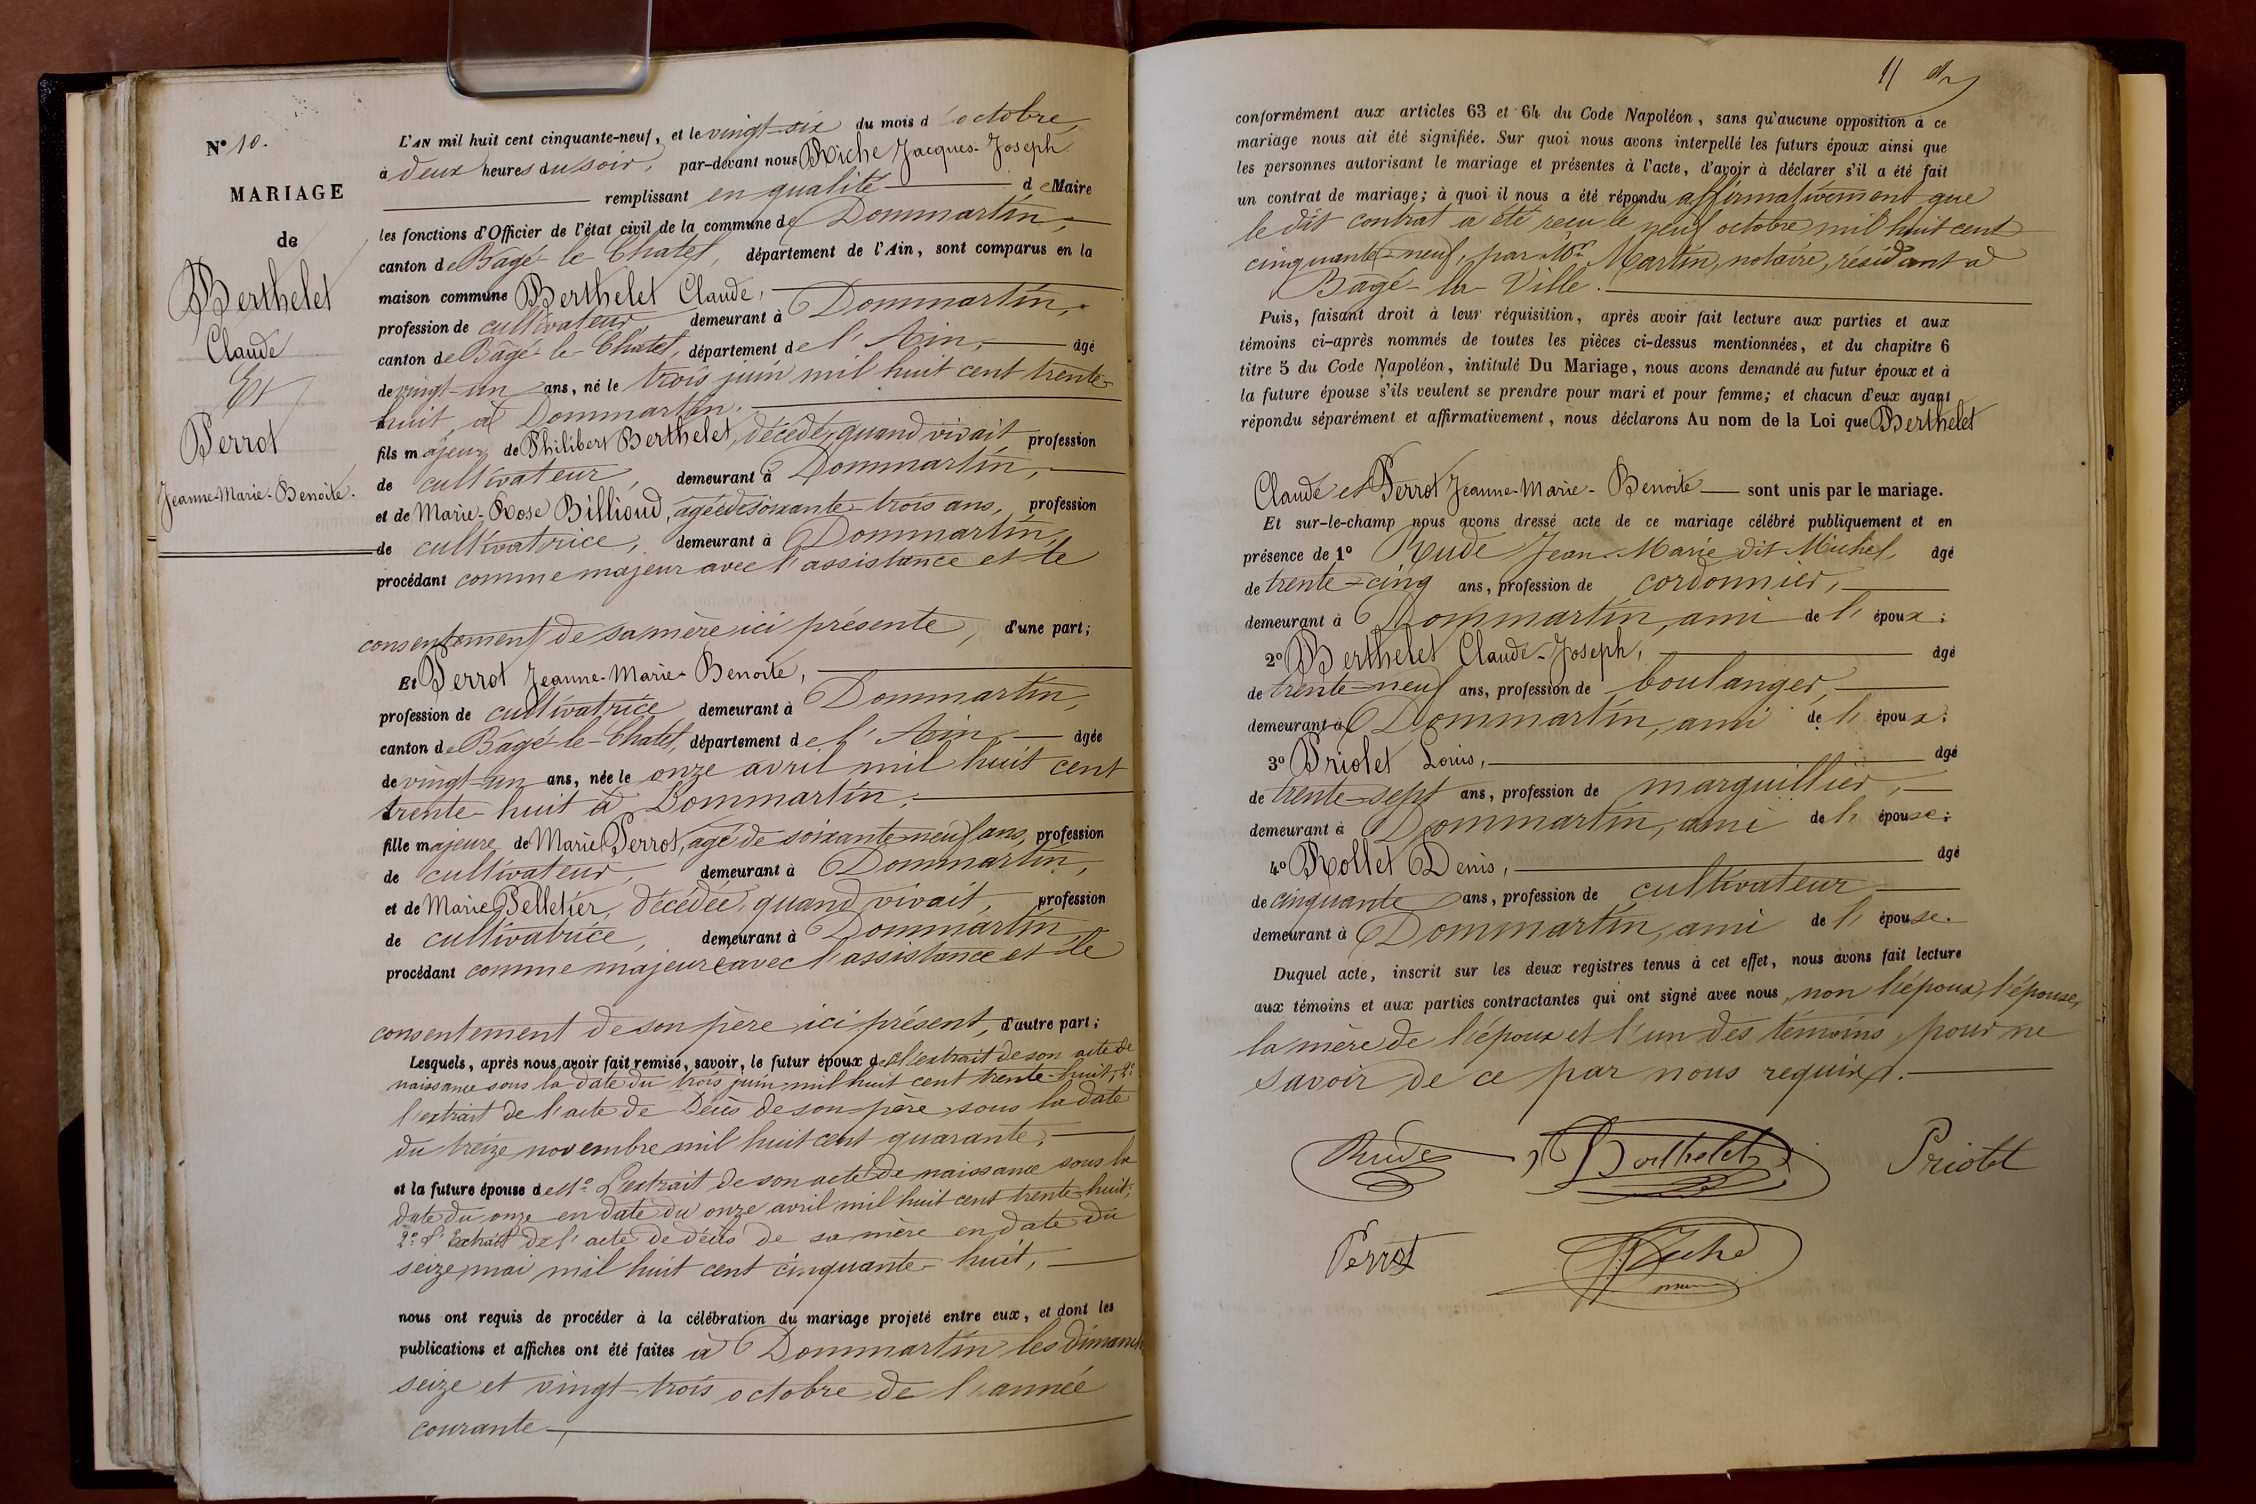 N° 10.
MARIAGE
de
Berthelet
Claude
Et
Perrot
Jeanne-Marie-Benoite.
L'AN mil huit cent cinquante-neuf, et le vingt-six du mois d'octobre,
à deux heures du soir, par-devant nous Riche Jacques-Joseph
remplissant en qualité de Maire
les fonctions d'Officier de l'état civil de la commune de Dommartin,
canton de Bâgé-le-Chatel, département de l'Ain, sont comparus en la
maison commune Berthelet Claude,
profession de cultivateur, demeurant à Dommartin,
canton de Bâgé-le-Chatel, département de l'Ain, âgé
de vingt-un ans, né le trois juin mil huit cent trente-
huit, à Dommartin.
fils majeur, de Philibert Berthelet, décédé, quand vivait profession
de cultivateur, demeurant à Dommartin,
et de Marie-Rose Billioud, agée de soixante-trois ans, profession
de cultivatrice, demeurant à Dommartin,
procédant comme majeur avec l'assistance et le
consentement de sa mère ici présente, d'une part;
Et Perrot Jeanne-Marie-Benoite,
profession de cultivatrice demeurant à Dommartin,
canton de Bâgé-le-Chatel, département de l'Ain, âgée
de vingt-un ans, née le onze avril mil huit cent
trente-huit à Dommartin,
fille majeure de Marie Perrot, agé de soixante-neuf ans, profession
de cultivateur, demeurant à Dommartin,
et de Marie Pelletier, décédée, quand vivait, profession
de cultivatrice, demeurant à Dommartin,
procédant comme majeure avec l'assistance et le
consentement de son père ici présent, d'autre part;
Lesquels, après nous avoir fait remise, savoir, le futur époux de l'extrait de son acte de
naissance sous la date du trois juin mil huit cent trente-huit, 2°
l'extrait de l'acte de décès de son père, sous la date
du treize novembre mil huit cent quarante,
et la future épouse de 1° L'extrait de son acte de naissance sous la
date du onze en date du onze avril mil huit cent trente-huit;
2° l'Extrait de l'acte de décès de sa mère en date du
seize mai mil huit cent cinquante-huit,
nous ont requis de procéder à la célébration du mariage projeté entre eux, et dont les
publications et affiches ont été faites à Dommartin les dimanch
seize et vingt-trois octobre de l'année
courante
11
conformément aux articles 63 et 64 du Code Napoléon, sans qu'aucune opposition à ce
mariage nous ait été signifiée. Sur quoi nous avons interpellé les futurs époux ainsi que
les personnes autorisant le mariage et présentes à l'acte, d'avoir à déclarer s'il a été fait
un contrat de mariage; à quoi il nous a été répondu affirmativement que
le dit contrat a été reçu le neuf octobre mil huit cent
cinquante-neuf, par Me Martin, notaire, résidant à
Bâgé-la-Ville.
Puis, faisant droit à leur réquisition, après avoir fait lecture aux parties et aux
témoins ci-après nommés de toutes les pièces ci-dessus mentionnées, et du chapitre 6
titre 5 du Code Napoléon, intitulé Du Mariage, nous avons demandé au futur époux et à
la future épouse s'ils veulent se prendre pour mari et pour femme; et chacun d'eux ayant
répondu séparément et affirmativement, nous déclarons Au nom de la Loi que Berthelet
Claude et Perrot Jeanne-Marie-Benoite sont unis par le mariage.
Et sur-le-champ nous avons dressé acte de ce mariage célébré publiquement et en
présence de 1° Rude Jean-Marie dit Michel, âgé
de trente-cinq ans, profession de cordonnier,
demeurant à Dommartin, ami de l'époux;
2° Berthelet Claude-Joseph, âgé
de trente-neuf ans, profession de boulanger,
demeurant à Dommartin, ami de l'époux;
3° Priolet Louis, âgé
de trente-sept ans, profession de marguillier,
demeurant à Dommartin, ami de l'épouse;
4° Rollet Denis, âgé
de cinquante ans, profession de cultivateur
demeurant à Dommartin, ami de l'épouse.
Duquel acte, inscrit sur les deux registres tenus à cet effet, nous avons fait lecture
aux témoins et aux parties contractantes qui ont signé avec nous, non l'époux, l'épouse,
la mère de l'époux et l'un des témoins, pour ne
savoir de ce par nous requis.
Rude Berthelet Priolet
Perrot Riche